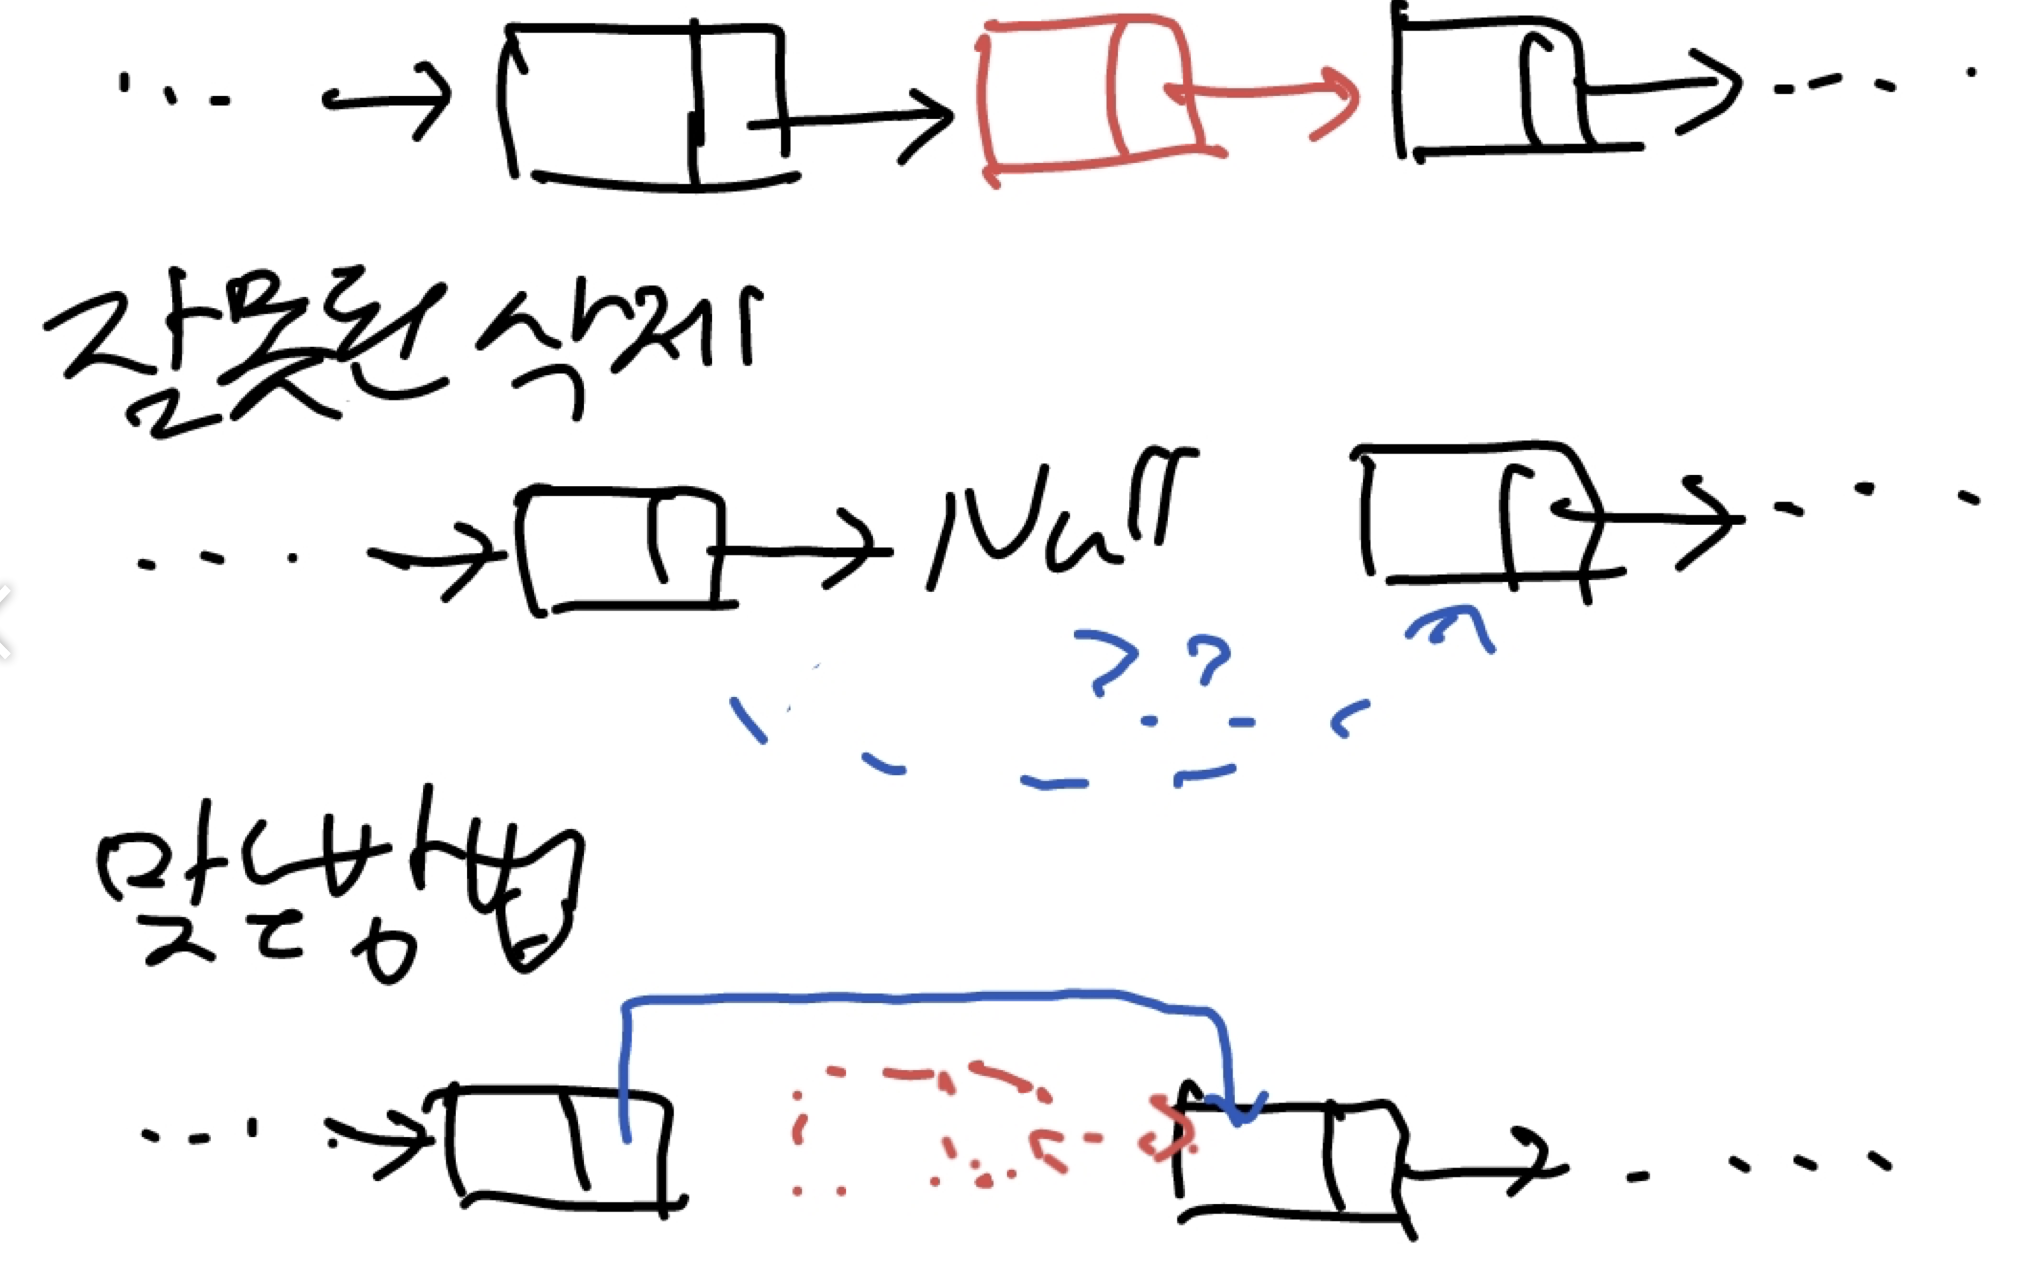 잘못된 삭제
Null
??
맞는방법